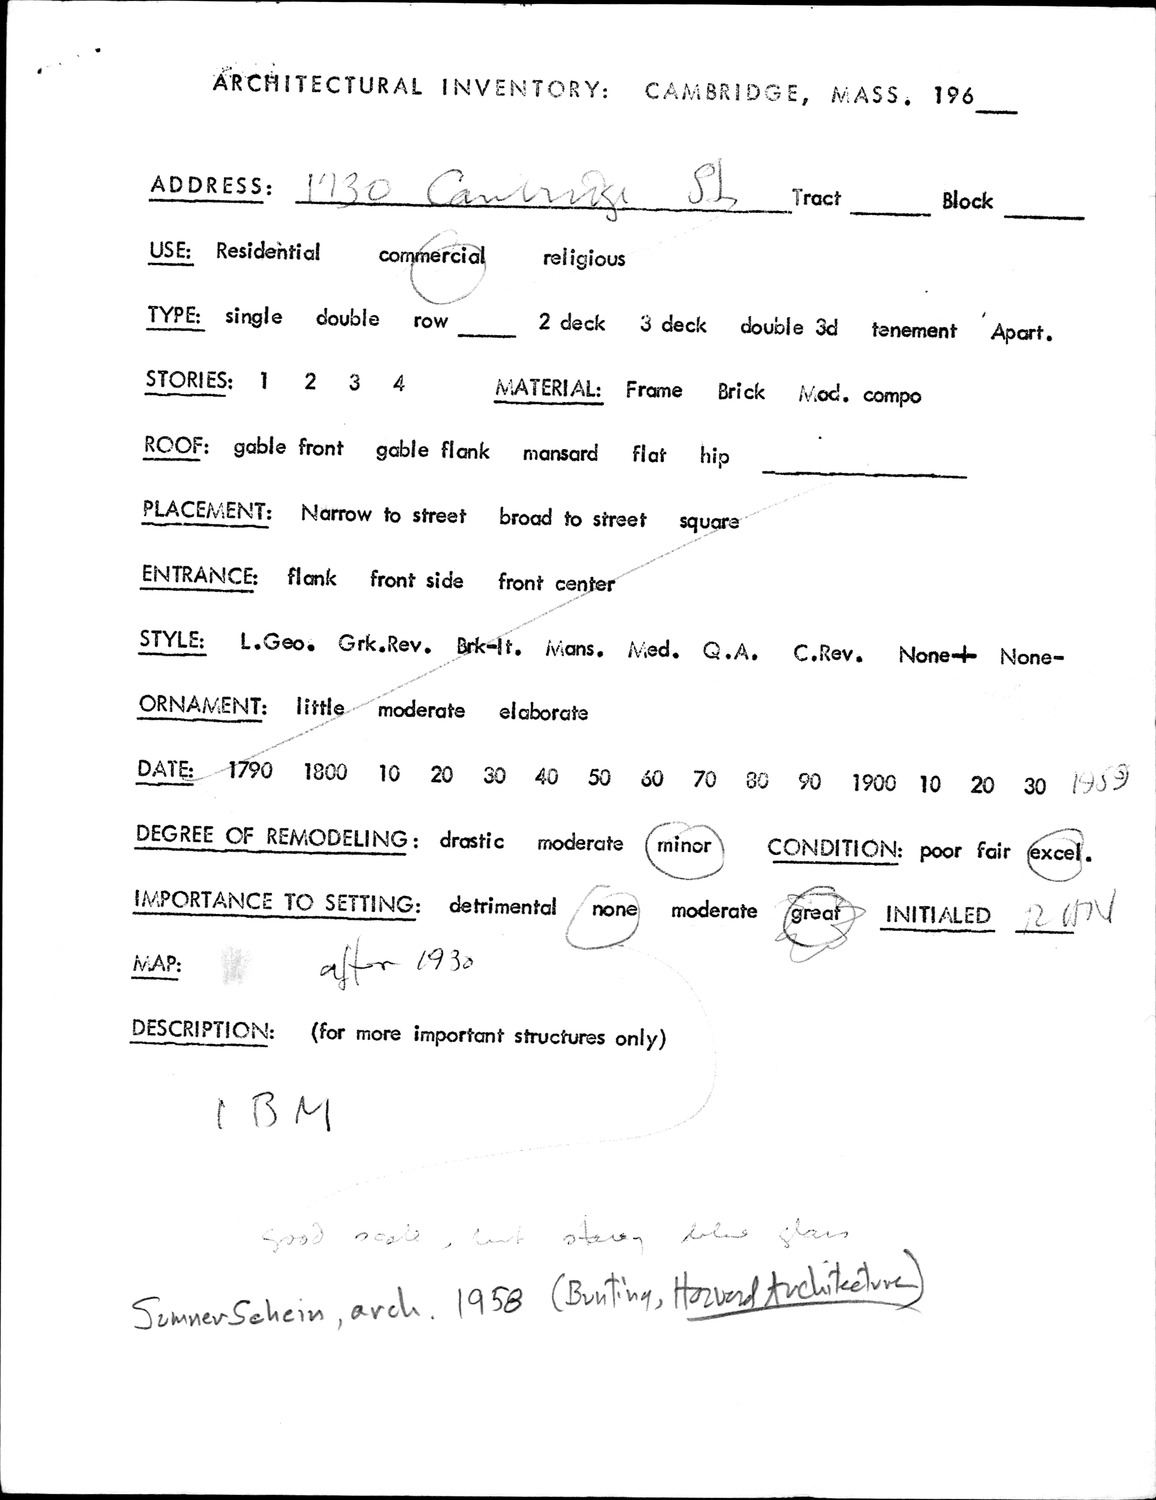 ARCHITECTURAL INVENTORY: CAMBRIDGE, MASS. 196___
ADDRESS: 1730 Cambridge St. Tract ___ Block ___
USE: Residential commercial religious
TYPE: single double row ___ 2 deck 3 deck double 3d tenement Apart.
STORIES: 1 2 3 4 MATERIAL: Frame Brick Mod. compo
ROOF: gable front gable flank mansard flat hip ___
PLACEMENT: Narrow to street broad to street square
ENTRANCE: flank front side front center
STYLE: L.Geo. Grk.Rev. Brk-It. Mans. Med. Q.A. C.Rev. None+ None-
ORNAMENT: little moderate elaborate
DATE: 1790 1800 10 20 30 40 50 60 70 80 90 1900 10 20 30 1959
DEGREE OF REMODELING: drastic moderate minor CONDITION: poor fair excel.
IMPORTANCE TO SETTING: detrimental none moderate great INITIALED
MAP: after 1930
DESCRIPTION: (for more important structures only)
IBM
good scale, but blue glass
Sumner Schein, arch. 1958 (Bunting, Harvard Architecture)